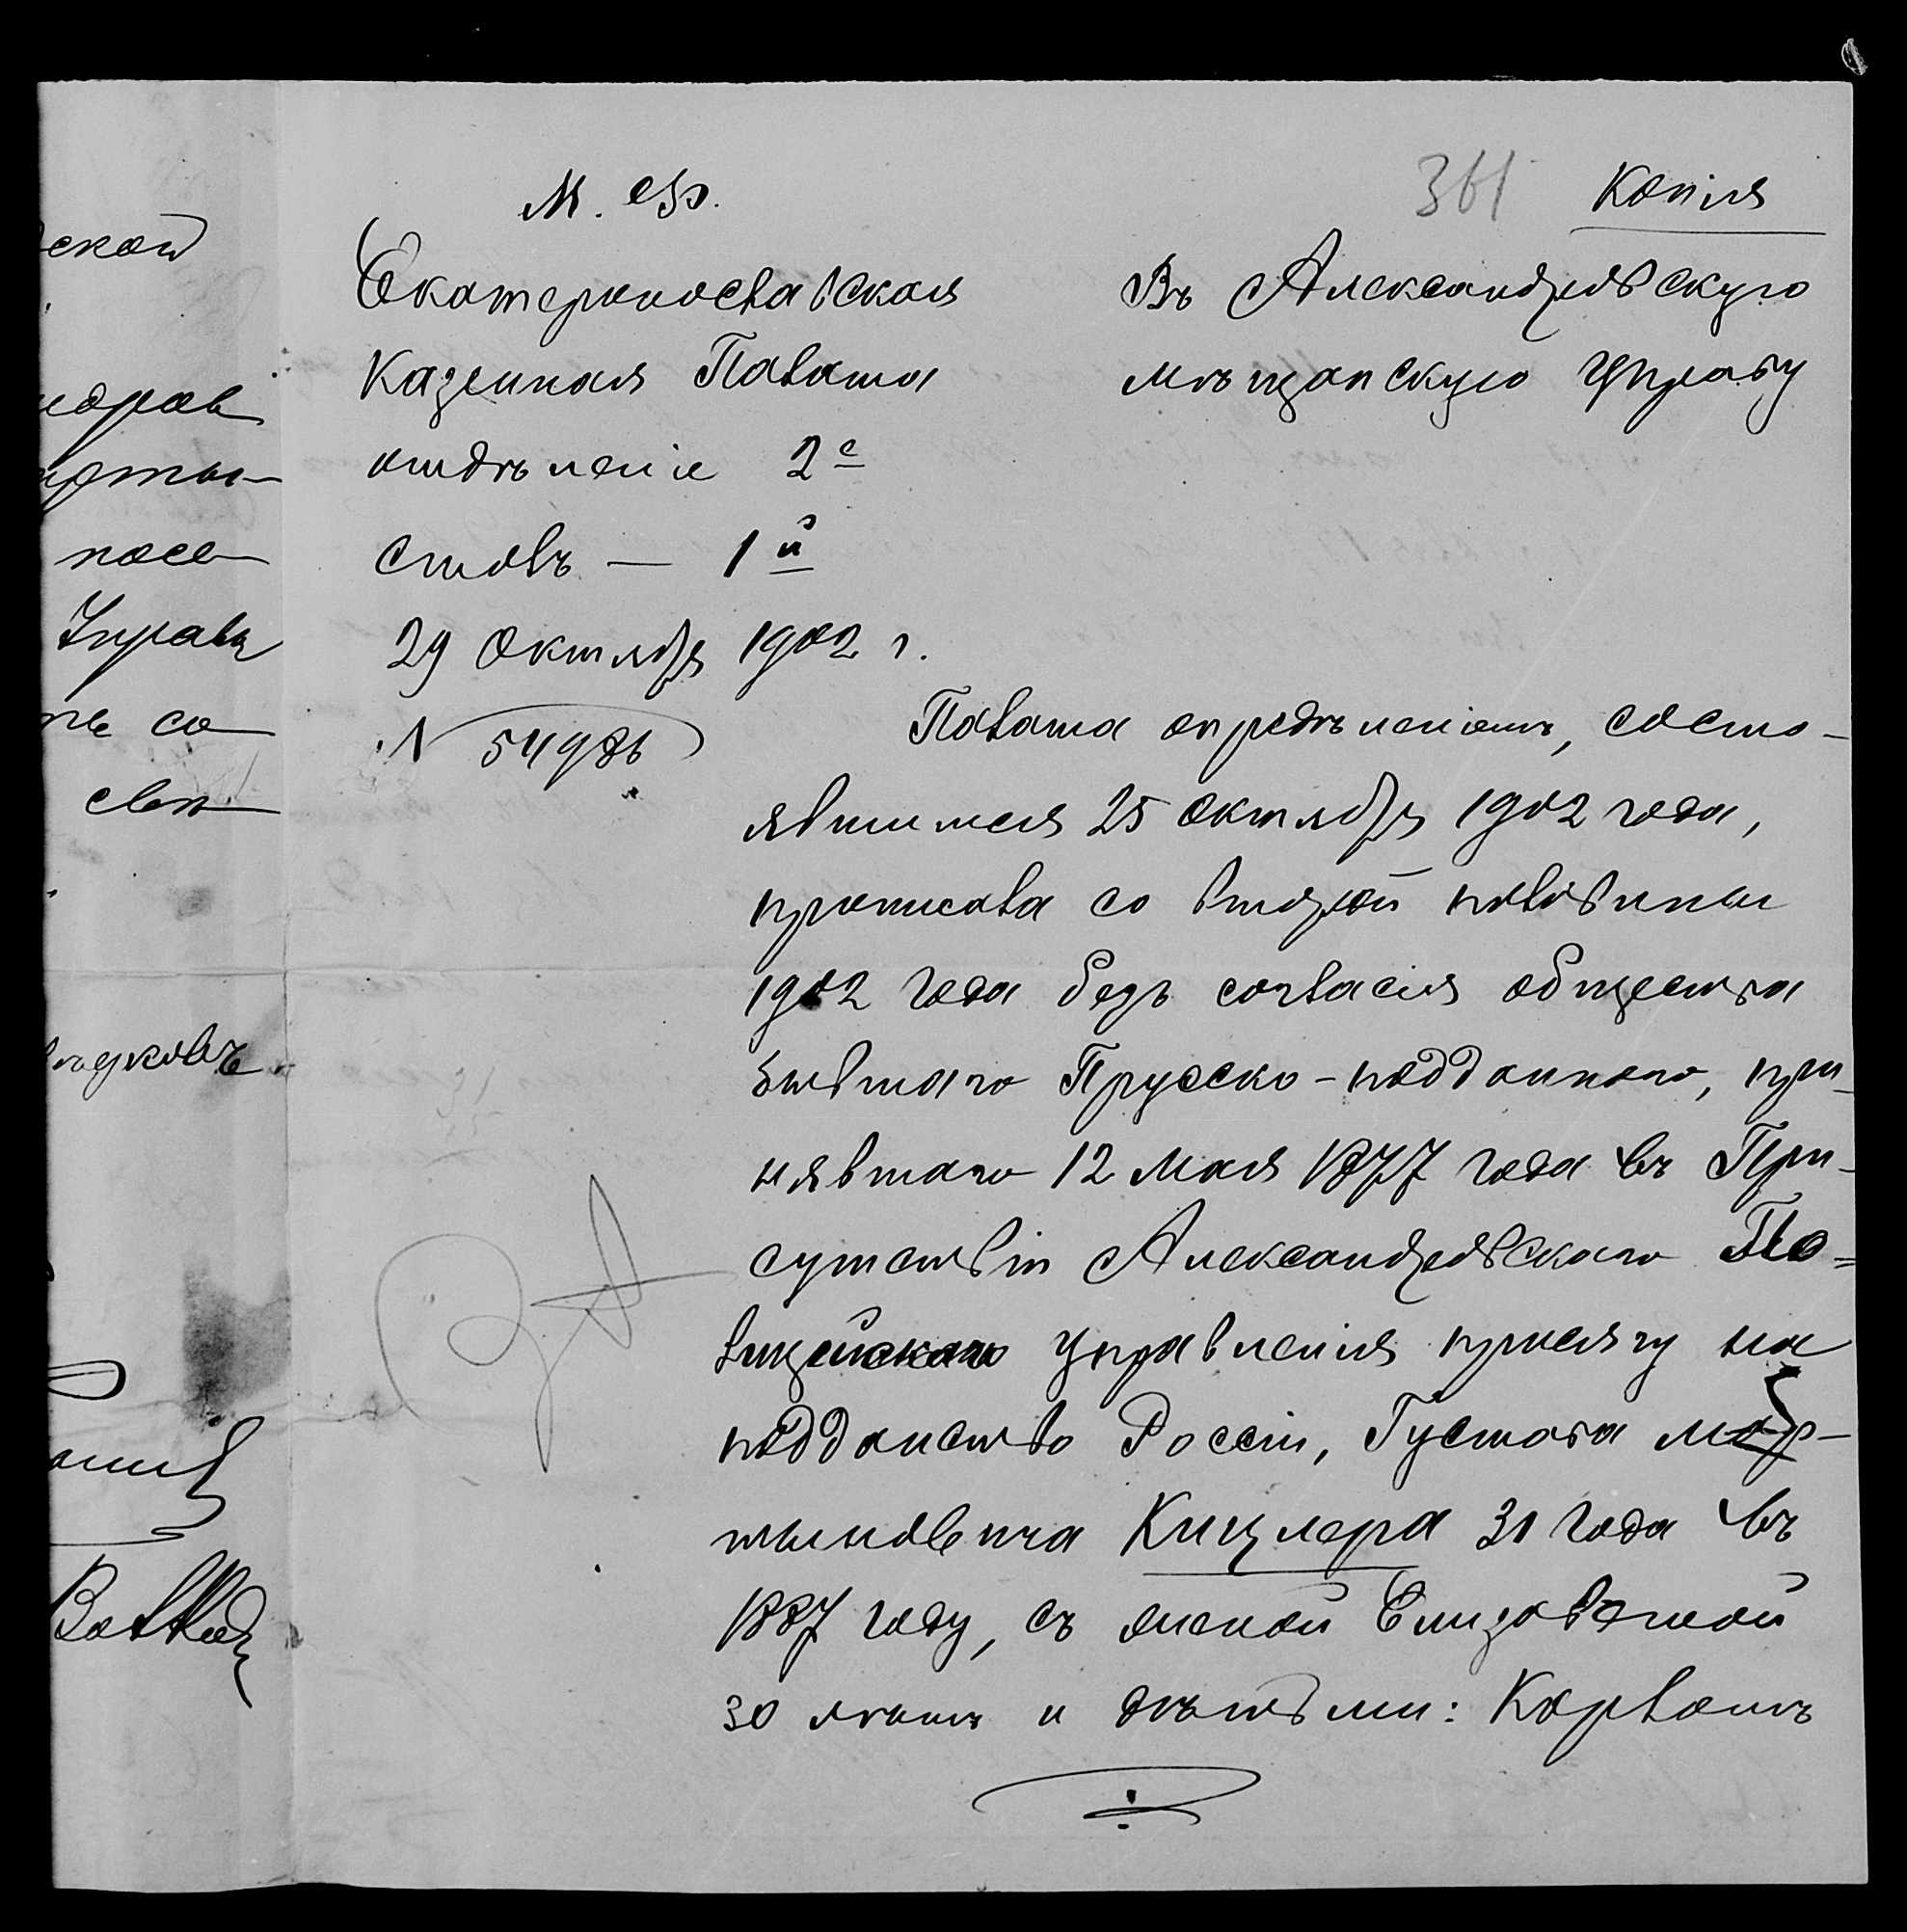 361 Копія
М. Ф.
Екатеринославская
Казенная Палата
отдѣленіе 2е
столъ — 1й
29 Октября 1902 г.
№ 54986
Въ Александровскую
мѣщанскую Управу
Палата опредѣленіемъ, состо-
явшимся 25 Октября 1902 года,
приписала со второй половины
1902 года безъ согласія общества
бывшаго Прусско-подданнаго, при-
нявшаго 12 Мая 1877 года въ При-
сутствіи Александровскаго По-
лицейскаго Управленія присягу на
подданство Россіи, Густава Мар-
тыновича Кицлера 31 года въ
1887 году, съ женой Елизаветой
30 лѣтъ и дѣтьми: Карломъ
ской
посе
Управа
со